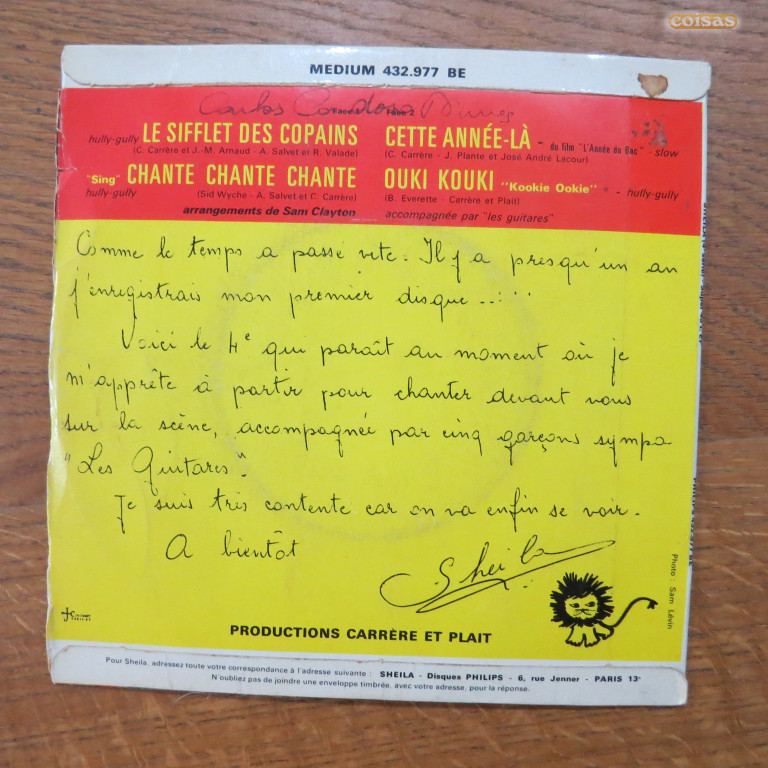 coisas
MEDIUM 432.977 BE
Carlos Cardoso Nunes
Face 2
hully-gully LE SIFFLET DES COPAINS
(C. Carrère et J.-M. Arnaud - A. Salvet et R. Valade)
"Sing" CHANTE CHANTE CHANTE
hully-gully (Sid Wyche - A. Salvet et C. Carrère)
arrangements de Sam Clayton
CETTE ANNÉE-LÀ - du film "L'Année du Bac" - slow
(C. Carrère - J. Plante et José André Lacour)
OUKI KOUKI "Kookie Ookie" - hully-gully
(B. Everette - Carrère et Plait)
accompagnée par "les guitares"
Comme le temps a passé vite. Il y a presqu'un an
j'enregistrais mon premier disque.....
Voici le 4e qui paraît au moment où je
m'apprête à partir pour chanter devant vous
sur la scène, accompagnée par cinq garçons sympa
"Les Guitares".
Je suis très contente car on va enfin se voir.
A bientôt
Sheila
Photo : Sam Lévin
PRODUCTIONS CARRÈRE ET PLAIT
Pour Sheila, adressez toute votre correspondance à l'adresse suivante : SHEILA - Disques PHILIPS - 6, rue Jenner - PARIS 13e
N'oubliez pas de joindre une enveloppe timbrée, avec votre adresse, pour la réponse.